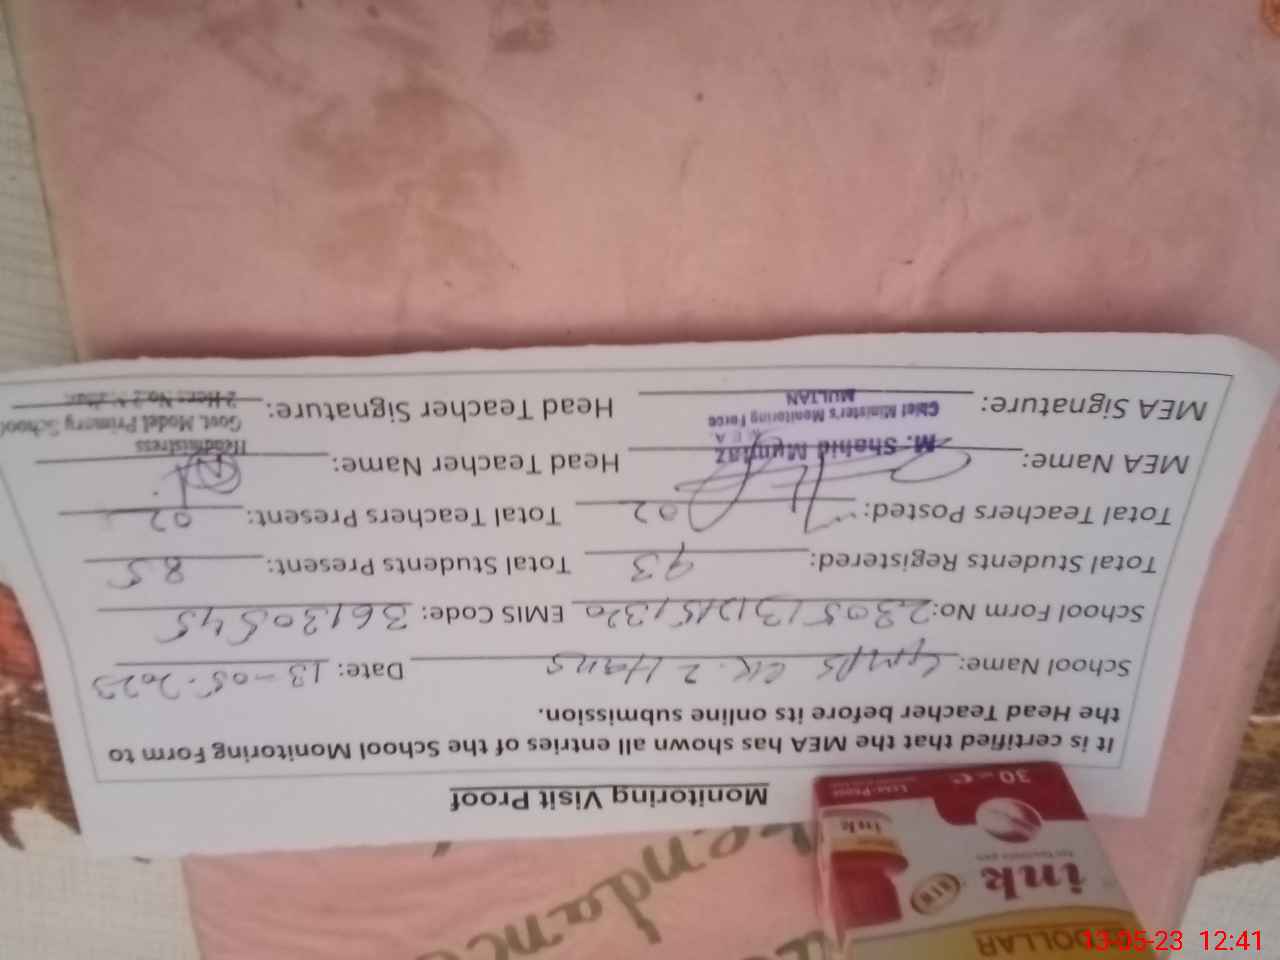 Monitoring Visit Proof
It is certified that the MEA has shown all entries of the School Monitoring Form to
the Head Teacher before its online submission.
School Name: GMPS CK. 2 Hans Date: 13-05-2023
School Form No: EMIS Code: 36120545
Total Students Registered: 93 Total Students Present: 85
Total Teachers Posted: 02 Total Teachers Present: 02
MEA Name: M. Shahid Mumtaz Head Teacher Name:
M.E.A
Chief Minister's Monitoring Force
MULTAN
Headmistress
Govt. Model Primary School
MEA Signature: Head Teacher Signature:
DOLLAR
ink
for fountain pen
NEW
ink
30
Leak-Proof
13-05-23 12:41